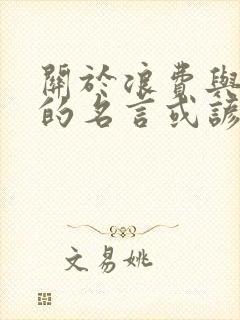 關於浪費與
的名言或諺
文易姚